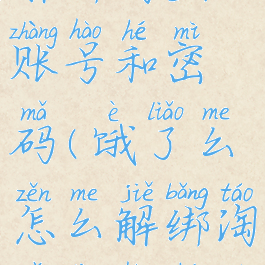 zhàng hào hé mì
账号和密
mǎ è liǎo me
码(饿了么
zěn me jiě bǎng táo
怎么解绑淘